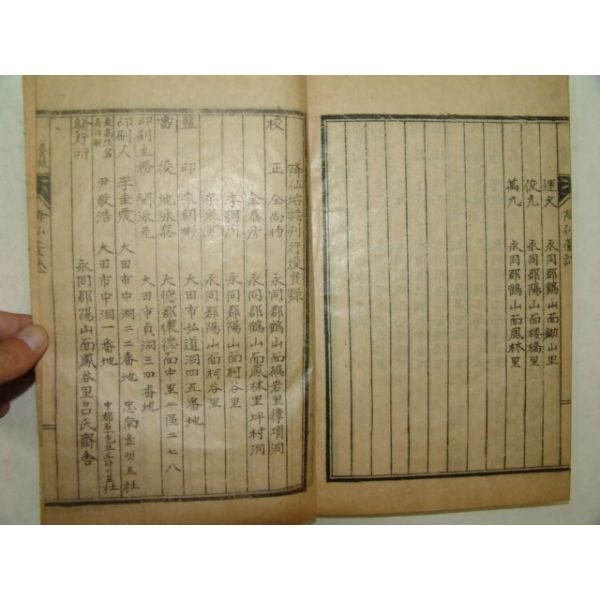 運夫 永同郡鶴山面鋤山里
俊九 永同郡陽山面樓橋里
萬九 永同郡鶴山面鳳林里
降仙台誌刊行役員錄
校正 全尚均 永同郡鶴山面鵂岩里律項洞
全展彦 永同郡鶴山面鳳林里坪村洞
李 永同郡陽山面柯谷里
李 永同郡陽山面柯谷里
監印 宋朝彬 大田市弘道洞四五番地
書役 池泳葵 大德郡懷德面中里二區二七八
印刷主務 閔泳元 大田市貞洞三四番地
印刷人 李圭震 大田市中洞二二番地 忠南 社
尹敬浩 大田市中洞一番地 社
發行所 永同郡陽山面鳳谷里呂氏齋舍